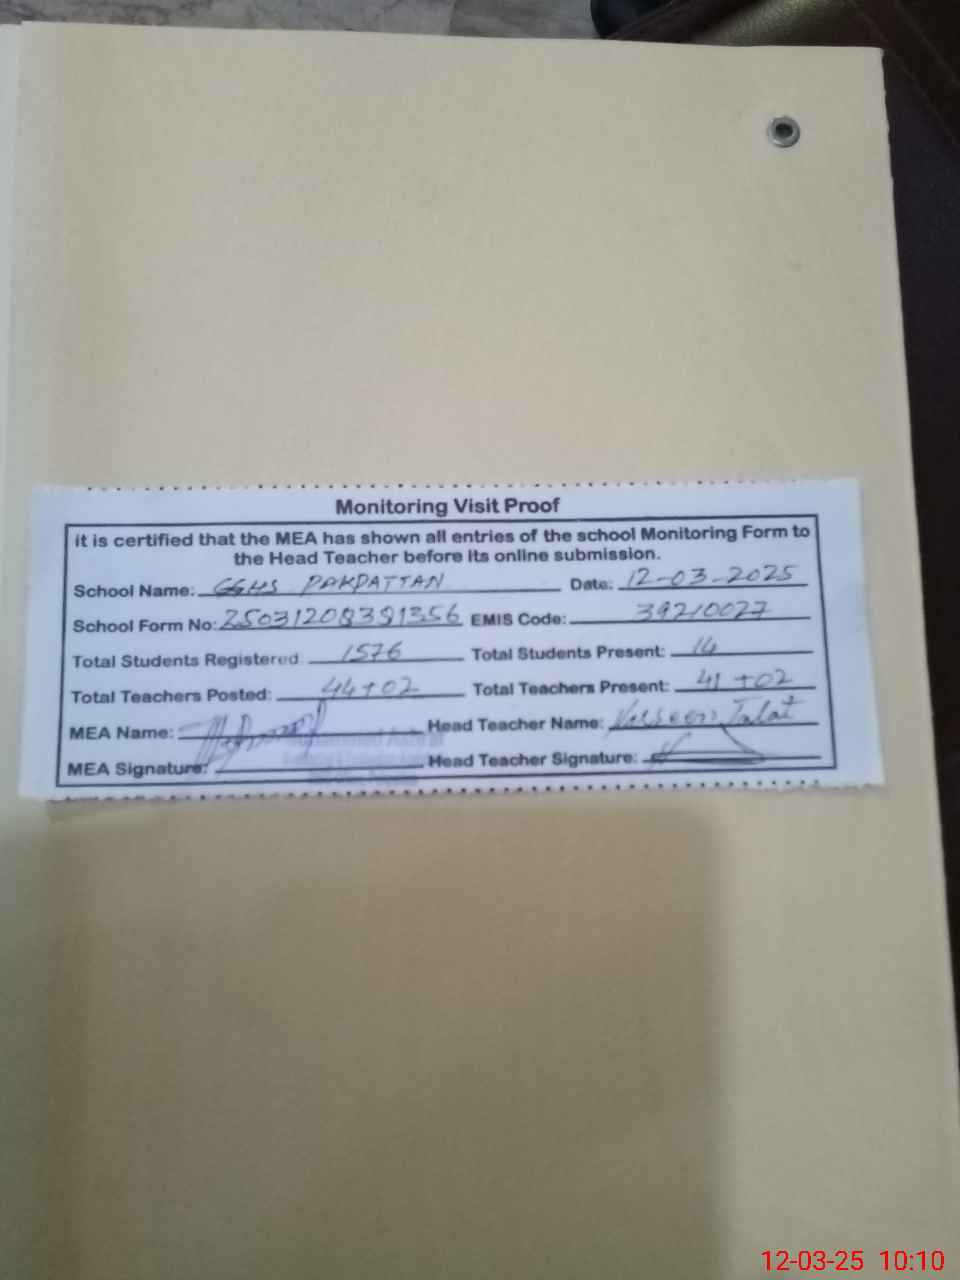 Monitoring Visit Proof
it is certified that the MEA has shown all entries of the school Monitoring Form to
the Head Teacher before its online submission.
School Name: GGHS PAKPATTAN Date: 12-03-2025
School Form No: 25031208391356 EMIS Code: 39210027
Total Students Registered: 1576 Total Students Present: 14
Total Teachers Posted: 44+02 Total Teachers Present: 41+02
MEA Name: Head Teacher Name: Talat
MEA Signature: Head Teacher Signature:
12-03-25 10:10